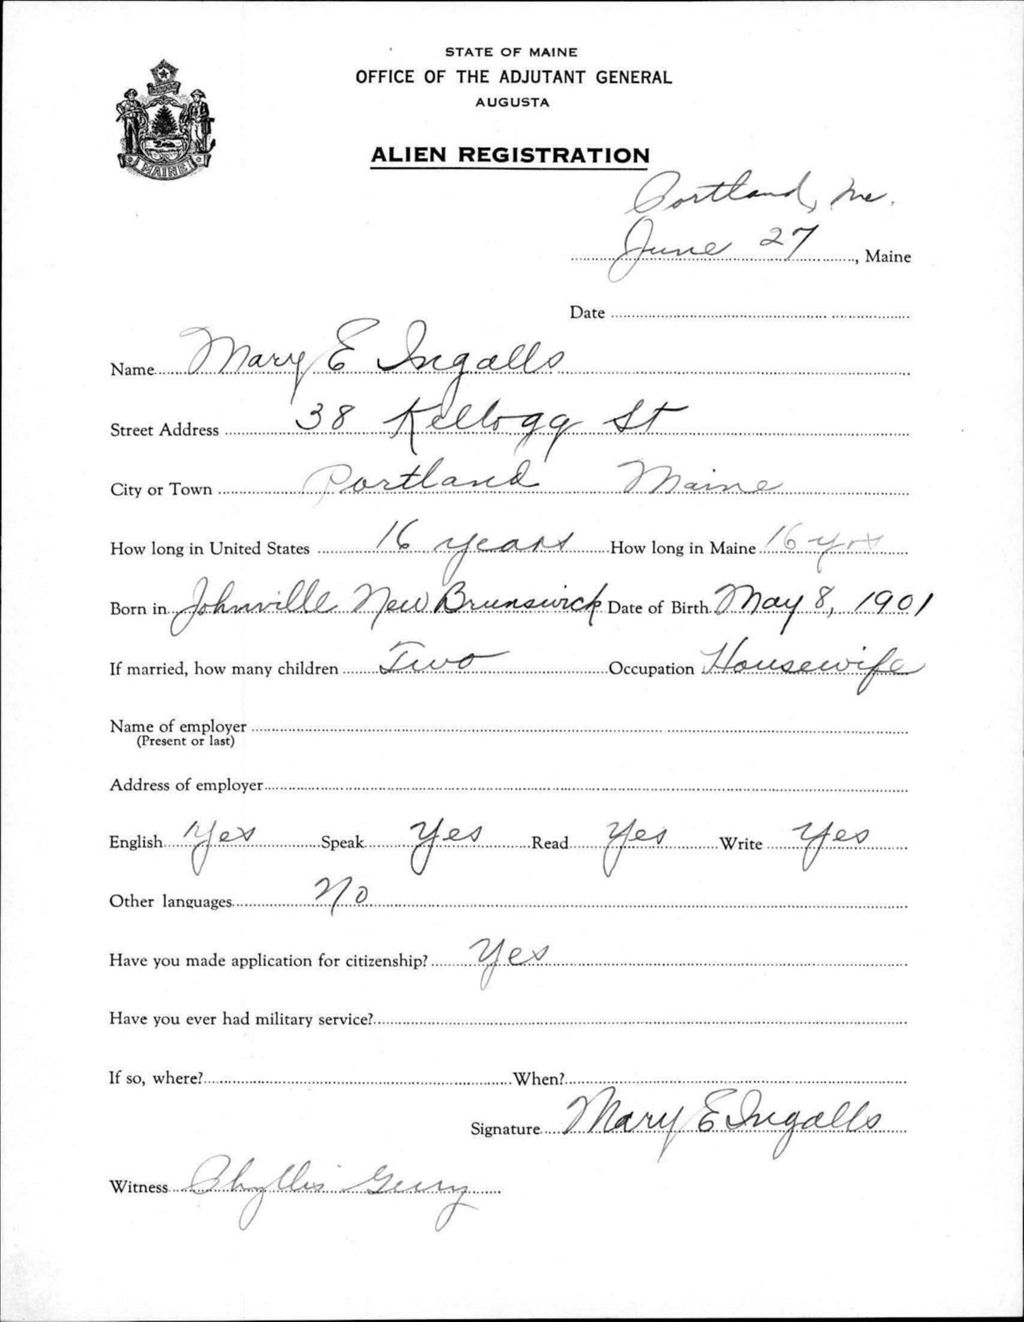 STATE OF MAINE
OFFICE OF THE ADJUTANT GENERAL
AUGUSTA
MAINE
ALIEN REGISTRATION
Portland, Me.
June 27, Maine
Date
Name Mary E Ingalls
Street Address 38 Kellogg St
City or Town Portland Maine
How long in United States 16 years How long in Maine 16 yrs
Born in Johnville New Brunswick Date of Birth May 8, 1901
If married, how many children Two Occupation Housewife
Name of employer
(Present or last)
Address of employer
English Yes Speak Yes Read Yes Write Yes
Other languages No
Have you made application for citizenship? Yes
Have you ever had military service?
If so, where? When?
Signature Mary E Ingalls
Witness Phyllis Gerry